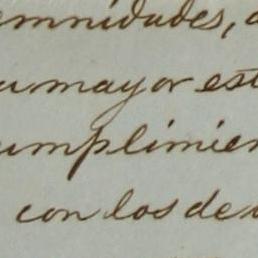 emnidades,
u mayor est
umplimien
con los de